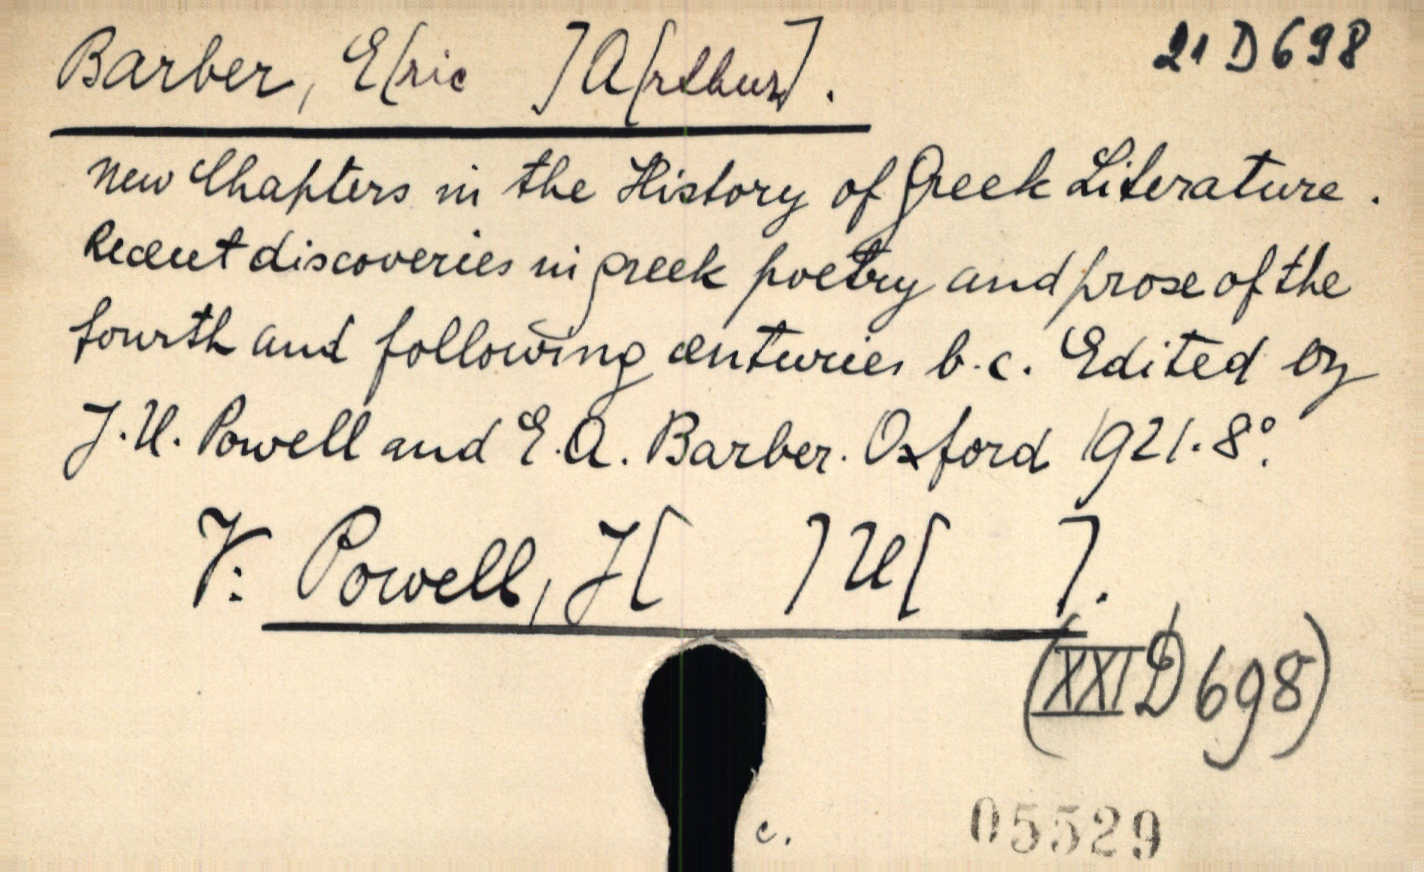 Barber, E[ric ] A[rthur]. 21 D 698
New Chapters in the History of Greek Literature.
Recent discoveries in greek poetry and prose of the
fourth and following centuries b.c. Edited by
J. U. Powell and E. A. Barber. Oxford 1921. 8°.
V: Powell, J[ ] U[ ].
(XXI D 698)
c.
05529